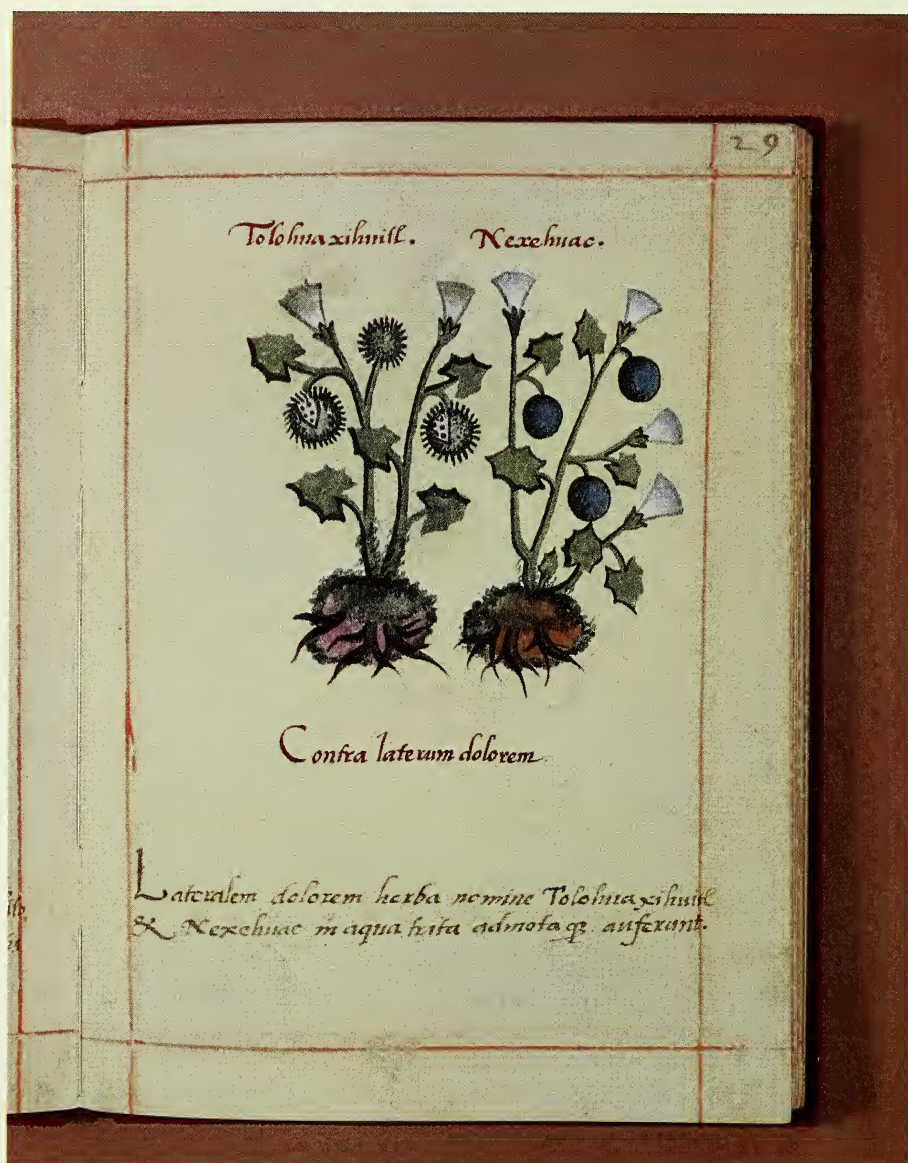 29
Tolohuaxihuitl. Nexehuac.
Contra laterum dolorem
Lateralem dolorem herba nomine Tolohuaxihuitl
& Nexehuac in aqua trita admotaqꝫ auferunt.